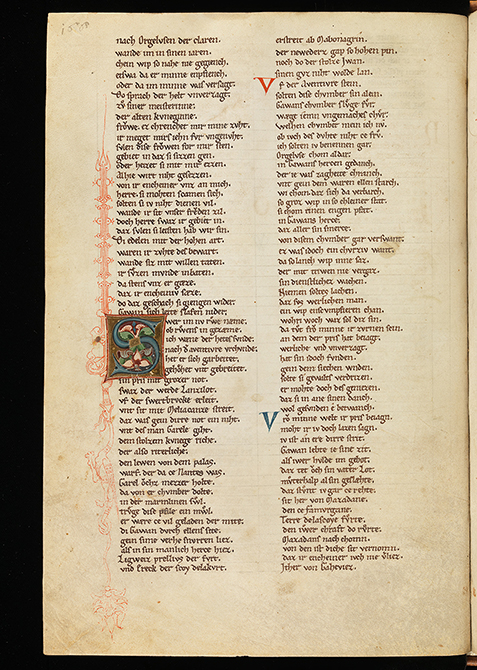 nach Orgelusen der claren.
wande im in sinen iaren.
chein wip so nahe nie gegiench.
etswa da er minne enpfiench.
oder da im minne was versagt.
Do sprach der helt unverzagt.
zv siner meisterinne.
der alten kvneginne.
frowe. ez chrenchet mir mine zvht.
ir meget mirs iehn fvr ungenvht.
svlen dise frowen fvr mir sten.
gebiet in daz si sizzen gen.
oder heizet si mit mir ezzen.
Alhie wirt niht gesezzen.
von ir encheiner vnz an mich.
herre. si mohten scamen sich.
solten si iv niht dienen vil.
wande ir sit unser freden zil.
doch herre swaz ir gebiet in.
daz svlen si leisten hab wir sin.
Di edelen mit der hohen art.
waren ir zvhte des bewart.
wande siz mit willen taten.
ir svzen mvnde in baten.
da stens vnz er gæze.
daz ir encheiniv sæze.
do daz geschach si giengen wider.
Gawan sich leite slafen nider.
swer im nv rwe næme.
ob rwens in gezæme.
ich wæne der hets svnde.
nach d aventivre vrchvnde.
het er sich garbeitet.
gehohet vnt gebreitet.
sin pris mit grozer not.
swaz der werde Lanzilot.
vf der swertbrvcke erleit.
vnt sit mit Meliacanze streit.
daz was gein dirre not ein niht.
vnt des man Garele giht.
dem stolzem kvnege riche.
der also riterliche.
den lewen von dem palas.
warf. der da ze Nantes was.
Garel ovch mezzer holte.
da von er chvmber dolte.
in der marmilinen svl.
trvge dise pfile ein mvl.
er wære ze vil geladen der mite.
di Gawan dvrch ellens site.
gein sime verhe snvrren liez.
als in sin manlich herce hiez.
Ligweiz prellivs der fvrt.
vnd Ereck der scoy delakvrt.
erstreit ab Mabonagrin.
der newederz gap so hohen pin.
noch do der stolze Iwan.
sinen gvz niht wolde lan.
Vf der Aventivre stein.
solten dise chvmber sin alein.
Gawans chvmber slvge fvr.
wæge iemn vngemaches chvr.
Welhen chvmber mein ich nv.
ob ivch des dvhte niht ze frv.
ich solten iv benennen gar.
Orgelvse chom aldar.
in Gawans hercen gedanch.
der ie was zagheite chranch.
vnt gein dem waren ellen starch.
wi chom daz sich da verbarch.
so groz wip in so chleiner stat.
si chom einen engen pfat.
in Gawans herce.
daz aller sin smerce.
von disem chvmber gar verswant.
ez was idoch ein chvrziv want.
da so lanch wip inne saz.
der mit triwen nie vergaz.
sin dienstlichez wachen.
Niemen solz lachen.
daz svs werlichen man.
ein wip ensevmpfieren chan.
wohri woch waz sol daz sin.
da tvt frov minne ir zvrnen sein.
an dem der pris hat beiagt.
werliche vnd vnverzagt.
hat sin doch fvnden.
gein dem siechen wnden.
solte si gewalts verdriezen.
er mohte doch des geniezen.
daz si in ane sinen danch.
wol gesvnden e betwanch.
Vro minne welt ir pris beiagen.
moht ir iv doch lazen sagn.
iv ist an ere dirre strit.
Gawan lebte ie sine zit.
als iwer hvlde im gebot.
daz tet ovch sin vater Lot.
mvterhalp al sin geslæhte.
daz stvnt iv gar ze rehte.
sit her von Mazadane.
den ze famvrgane.
Terre delascoye fvrte.
den iwer chraft do rvrte.
Mazadans nach chomn.
von den ist diche sit vernomn.
daz ir encheiner ivch nie v'liez.
Ither von Gaheviez.